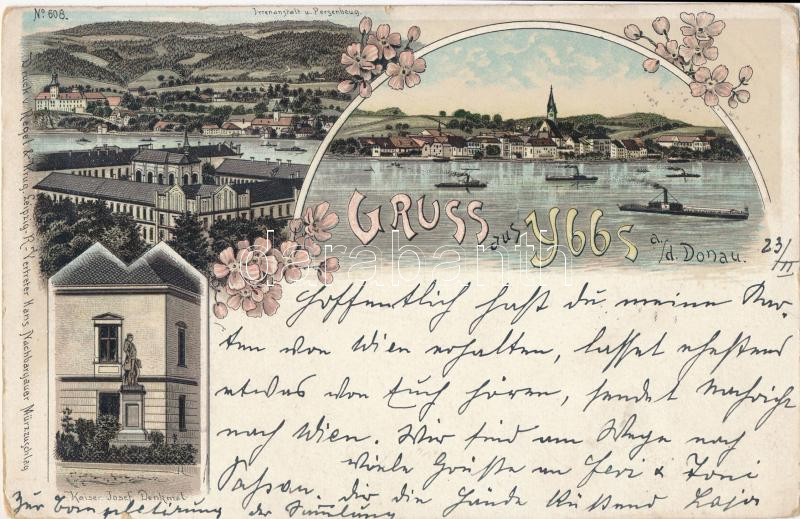 No 608.
Irrenanstalt u. Persenbeug.
Druck v. Nagel & Krug, Leipzig-R.- Vertreter Hans Nachbargauer Mürzzuschlag
GRUSS aus Ybbs a./d. Donau.
23/III
Hoffentlich hast du meine Kar-
ten von Wien erhalten, lasset ehestens
etwas von Euch hören, sendet Nachricht
nach Wien. Wir sind am Wege nach
Passau. Viele Grüsse an Feri & Toni
dir die Hände küssend
Zur Completirung der Sammlung
Kaiser Josef Denkmal
darabanth.com